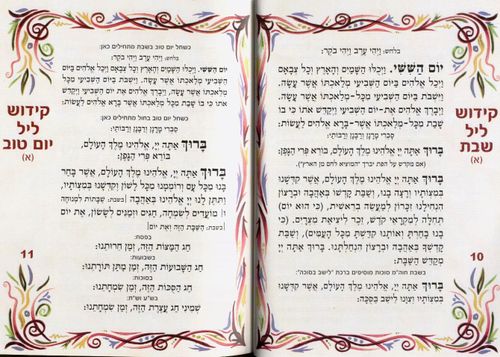 בלחש: וַיְהִי עֶרֶב וַיְהִי בֹקֶר:
יוֹם הַשִּׁשִּׁי. וַיְכֻלּוּ הַשָּׁמַיִם וְהָאָרֶץ וְכָל צְבָאָם:
וַיְכַל אֱלֹהִים בַּיּוֹם הַשְּׁבִיעִי מְלַאכְתּוֹ אֲשֶׁר עָשָׂה.
וַיִּשְׁבֹּת בַּיּוֹם הַשְּׁבִיעִי מִכָּל-מְלַאכְתּוֹ אֲשֶׁר עָשָׂה:
וַיְבָרֶךְ אֱלֹהִים אֶת-יוֹם הַשְּׁבִיעִי וַיְקַדֵּשׁ אֹתוֹ כִּי בוֹ
שָׁבַת מִכָּל-מְלַאכְתּוֹ אֲשֶׁר-בָּרָא אֱלֹהִים לַעֲשׂוֹת:
סַבְרִי מָרָנָן וְרַבָּנָן וְרַבּוֹתַי:
בָּרוּךְ אַתָּה יְיָ, אֱלֹהֵינוּ מֶלֶךְ הָעוֹלָם, בּוֹרֵא פְּרִי הַגָּפֶן:
(אם מקדש על הפת יברך "המוציא לחם מן הארץ").
בָּרוּךְ אַתָּה יְיָ, אֱלֹהֵינוּ מֶלֶךְ הָעוֹלָם, אֲשֶׁר קִדְּשָׁנוּ
בְּמִצְוֹתָיו וְרָצָה בָנוּ, וְשַׁבַּת קָדְשׁוֹ בְּאַהֲבָה וּבְרָצוֹן
הִנְחִילָנוּ זִכָּרוֹן לְמַעֲשֵׂה בְרֵאשִׁית, (כִּי הוּא יוֹם)
תְּחִלָּה לְמִקְרָאֵי קֹדֶשׁ, זֵכֶר לִיצִיאַת מִצְרָיִם. (כִּי
בָנוּ בָחַרְתָּ וְאוֹתָנוּ קִדַּשְׁתָּ מִכָּל הָעַמִּים), וְשַׁבַּת
קָדְשְׁךָ בְּאַהֲבָה וּבְרָצוֹן הִנְחַלְתָּנוּ. בָּרוּךְ אַתָּה יְיָ
מְקַדֵּשׁ הַשַּׁבָּת:
בשבת חוה"מ סוכות מוסיפים ברכת "לישב בסוכה":
בָּרוּךְ אַתָּה יְיָ, אֱלֹהֵינוּ מֶלֶךְ הָעוֹלָם, אֲשֶׁר קִדְּשָׁנוּ
בְּמִצְוֹתָיו וְצִוָּנוּ לֵישֵׁב בַּסֻּכָּה:
קידוש
ליל
שבת
(א)
10
כשחל יום טוב בשבת מתחילים כאן:
בלחש: וַיְהִי עֶרֶב וַיְהִי בֹקֶר:
יוֹם הַשִּׁשִּׁי. וַיְכֻלּוּ הַשָּׁמַיִם וְהָאָרֶץ וְכָל צְבָאָם: וַיְכַל אֱלֹהִים בַּיּוֹם
הַשְּׁבִיעִי מְלַאכְתּוֹ אֲשֶׁר עָשָׂה. וַיִּשְׁבֹּת בַּיּוֹם הַשְּׁבִיעִי מִכָּל
מְלַאכְתּוֹ אֲשֶׁר עָשָׂה: וַיְבָרֶךְ אֱלֹהִים אֶת יוֹם הַשְּׁבִיעִי וַיְקַדֵּשׁ
אֹתוֹ כִּי בוֹ שָׁבַת מִכָּל מְלַאכְתּוֹ אֲשֶׁר בָּרָא אֱלֹהִים לַעֲשׂוֹת:
כשחל יום טוב בחול מתחילים כאן:
סַבְרִי מָרָנָן וְרַבָּנָן וְרַבּוֹתַי:
בָּרוּךְ אַתָּה יְיָ, אֱלֹהֵינוּ מֶלֶךְ הָעוֹלָם,
בּוֹרֵא פְּרִי הַגָּפֶן:
בָּרוּךְ אַתָּה יְיָ, אֱלֹהֵינוּ מֶלֶךְ הָעוֹלָם, אֲשֶׁר בָּחַר
בָּנוּ מִכָּל עָם וְרוֹמְמָנוּ מִכָּל לָשׁוֹן וְקִדְּשָׁנוּ בְּמִצְוֹתָיו,
וַתִּתֶּן לָנוּ יְיָ אֱלֹהֵינוּ בְּאַהֲבָה | בשבת: שַׁבָּתוֹת לִמְנוּחָה
וּ| מוֹעֲדִים לְשִׂמְחָה, חַגִּים וּזְמַנִּים לְשָׂשׂוֹן, אֶת יוֹם
| בשבת: הַשַּׁבָּת הַזֶּה וְאֶת יוֹם |
בפסח:
חַג הַמַּצּוֹת הַזֶּה, זְמַן חֵרוּתֵנוּ:
בשבועות:
חַג הַשָּׁבוּעוֹת הַזֶּה, זְמַן מַתַּן תּוֹרָתֵנוּ:
בסוכות:
חַג הַסֻּכּוֹת הַזֶּה, זְמַן שִׂמְחָתֵנוּ:
בש"ע וש"ת:
שְׁמִינִי חַג עֲצֶרֶת הַזֶּה, זְמַן שִׂמְחָתֵנוּ:
קידוש
ליל
יום טוב
(א)
11